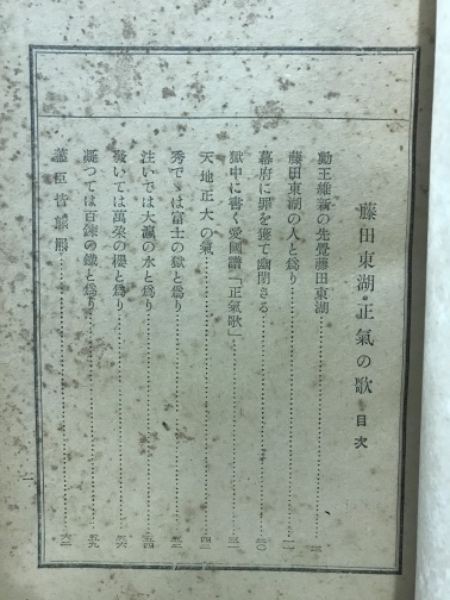 藤田東湖・正氣の歌 目次
勤王維新の先覺藤田東湖
藤田東湖の人と爲り……一一
幕府に罪を獲て幽閉さる……二〇
獄中に書く愛國譜「正氣歌」……三一
天地正大の氣……四二
秀でゝは富士の嶽と爲り……五二
注いでは大瀛の水と爲り……五四
發いては萬朶の櫻と爲り……五六
凝つては百錬の鐵と爲り……五九
藎臣皆熊羆……六二
一